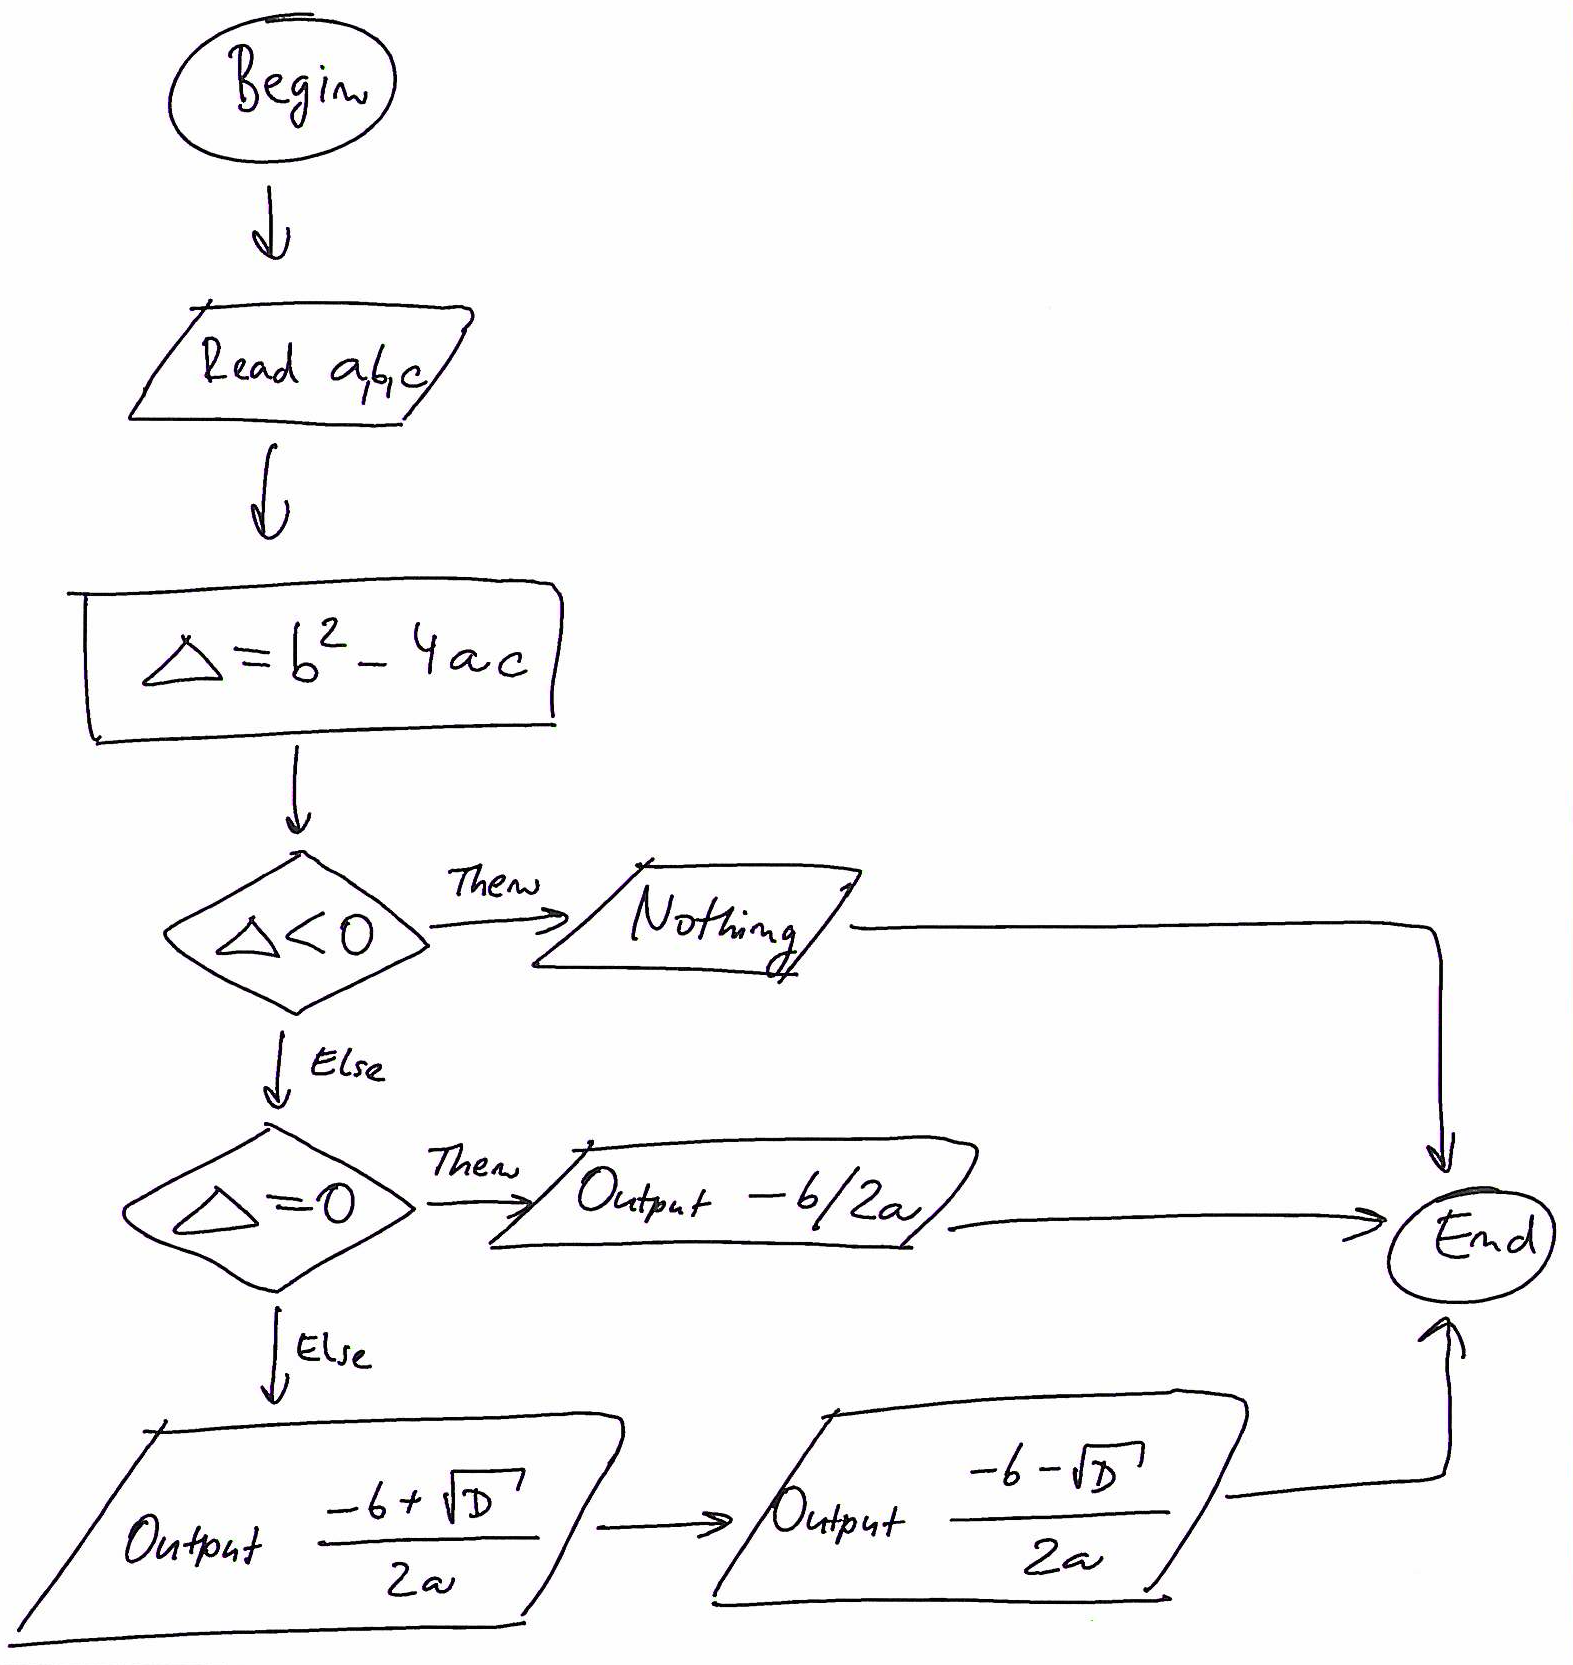 Begin
Read a,b,c
△ = b² - 4ac
△ < 0
Then
Nothing
Else
△ = 0
Then
Output -b/2a
End
Else
Output (-b + √D) / 2a
Output (-b - √D) / 2a